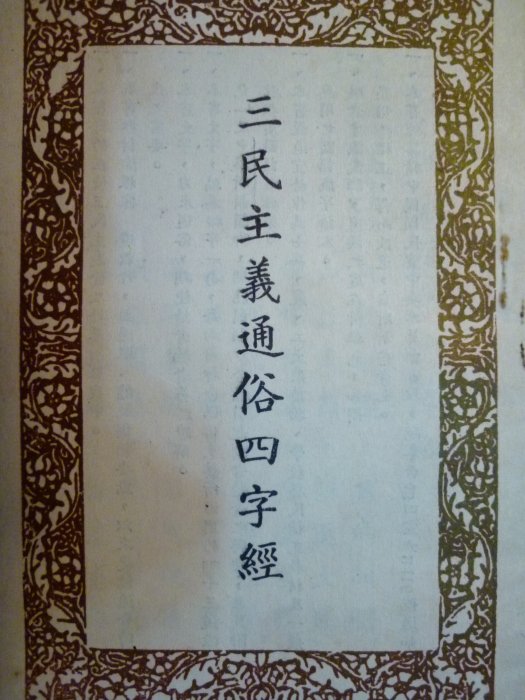 三民主義通俗四字經